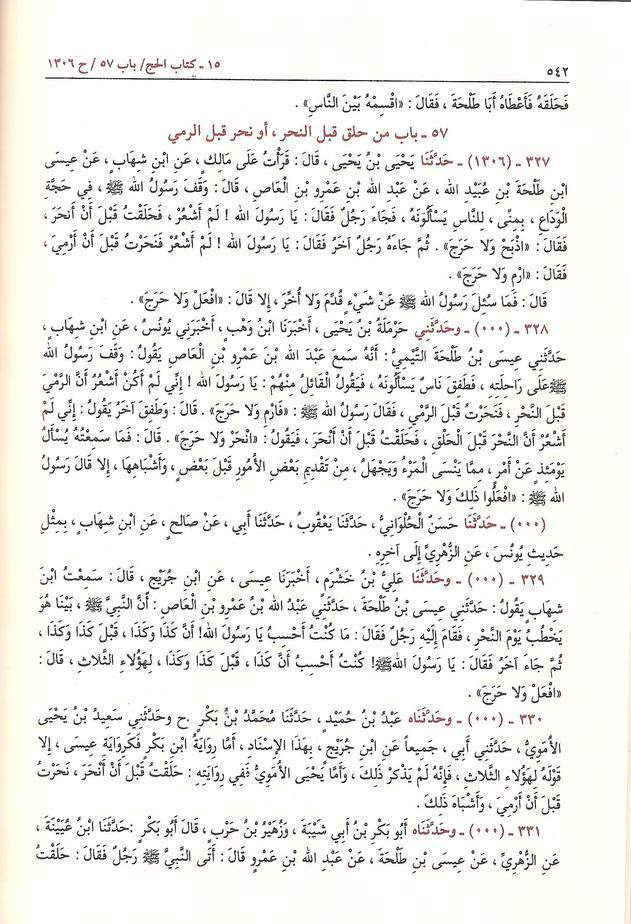 ٥٤٢ ١٥ ـ كتاب الحج/ باب ٥٧/ ح ١٣٠٦
فَحَلَقَهُ فَأَعْطَاهُ أَبَا طَلْحَةَ ، فَقَالَ : «اقْسِمْهُ بَيْنَ النَّاسِ» .
٥٧ ـ باب من حلق قبل النحر ، أو نحر قبل الرمي
٣٢٧ ـ (١٣٠٦) ـ حَدَّثَنَا يَحْيَى بْنُ يَحْيَى ، قَالَ : قَرَأْتُ عَلَى مَالِكٍ، عَنِ ابْنِ شهَابٍ، عَنْ عِيسَى
ابْنِ طَلْحَةَ بْنِ عُبَيْدِ الله ، عَنْ عَبْدِ الله بْنِ عَمْرِو بْنِ الْعَاصِ ، قَالَ : وَقَفَ رَسُولُ الله ﷺ ، فِي حَجَّةِ
الْوَدَاعِ ، بِمِنًى ، لِلنَّاسِ يَسْأَلُونَهُ ، فَجَاءَ رَجُلٌ فَقَالَ : يَا رَسُولَ الله ! لَمْ أَشْعُرْ ، فَحَلَقْتُ قَبْلَ أَنْ أَنحَرَ ،
فَقَالَ : «اذْبَحْ وَلا حَرَجَ» . ثُمَّ جَاءَهُ رَجُلٌ آخَرُ فَقَالَ : يَا رَسُولَ الله ! لَمْ أَشْعُرْ فَنَحَرْتُ قَبْلَ أَنْ أَرْمِيَ ،
فَقَالَ : «ارْمِ وَلا حَرَجَ» .
قَالَ : فَمَا سُئِلَ رَسُولُ الله ﷺ عَنْ شَيْءٍ قُدِّمَ وَلا أُخِّرَ ، إِلا قَالَ : «افْعَلْ وَلا حَرَجَ» .
٣٢٨ ـ (٠٠٠) ـ وحَدَّثَنِي حَرْمَلَةُ بْنُ يَحْيَى ، أَخْبَرَنَا ابْنُ وَهْبٍ ، أَخْبَرَنِي يُونُسُ ، عَنِ ابْنِ شِهَابٍ ،
حَدَّثَنِي عِيسَى بْنُ طَلْحَةَ التَّيْمِيُّ : أَنَّهُ سَمِعَ عَبْدَ الله بْنَ عَمْرِو بْنِ الْعَاصِ يَقُولُ : وَقَفَ رَسُولُ الله
ﷺعَلَى رَاحِلَتِهِ ، فَطَفِقَ نَاسٌ يَسْأَلُونَهُ ، فَيَقُولُ الْقَائِلُ مِنْهُمْ : يَا رَسُولَ الله ! إِنِّي لَمْ أَكُنْ أَشْعُرُ أَنَّ الرَّمْيَ
قَبْلَ النَّحْرِ ، فَنَحَرْتُ قَبْلَ الرَّمْيِ ، فَقَالَ رَسُولُ الله ﷺ : «فَارْمِ وَلا حَرَجَ» . قَالَ : وَطَفِقَ آخَرُ يَقُولُ : إِنِّي لَمْ
أَشْعُرْ أَنَّ النَّحْرَ قَبْلَ الْحَلْقِ ، فَحَلَقْتُ قَبْلَ أَنْ أَنْحَرَ ، فَيَقُولُ : «انْحَرْ وَلا حَرَجَ» . قَالَ : فَمَا سَمِعْتُهُ يُسْأَلُ
يَوْمَئِذٍ عَنْ أَمْرٍ ، مِمَّا يَنْسَى الْمَرْءُ وَيَجْهَلُ ، مِنْ تَقْدِيمِ بَعْضِ الأُمُورِ قَبْلَ بَعْضٍ ، وَأَشْبَاهِهَا ، إِلا قَالَ رَسُولُ
الله ﷺ : «افْعَلُوا ذَلِكَ وَلا حَرَجَ» .
(٠٠٠) ـ حَدَّثَنَا حَسَنٌ الْحُلْوَانِيُّ ، حَدَّثَنَا يَعْقُوبُ ، حَدَّثَنَا أَبِي ، عَنْ صَالِحٍ ، عَنِ ابْنِ شِهَابٍ ، بِمِثْلِ
حَدِيثِ يُونُسَ ، عَنِ الزُّهْرِيِّ إِلَى آخِرِهِ .
٣٢٩ ـ (٠٠٠) ـ وحَدَّثَنَا عَلِيُّ بْنُ خَشْرَمٍ ، أَخْبَرَنَا عِيسَى ، عَنِ ابْنِ جُرَيْجٍ ، قَالَ : سَمِعْتُ ابْنَ
شِهَابٍ يَقُولُ : حَدَّثَنِي عِيسَى بْنُ طَلْحَةَ ، حَدَّثَنِي عَبْدُ الله بْنُ عَمْرِو بْنِ الْعَاصِ : أَنَّ النَّبِيَّ ﷺ ، بَيْنَا هُوَ
يَخْطُبُ يَوْمَ النَّحْرِ ، فَقَامَ إِلَيْهِ رَجُلٌ فَقَالَ : مَا كُنْتُ أَحْسِبُ يَا رَسُولَ الله! أَنَّ كَذَا وَكَذَا ، قَبْلَ كَذَا وَكَذَا ،
ثُمَّ جَاءَ آخَرُ فَقَالَ : يَا رَسُولَ اللهﷺ! كُنْتُ أَحْسِبُ أَنَّ كَذَا ، قَبْلَ كَذَا وَكَذَا ، لِهَؤُلاءِ الثَّلاثِ ، قَالَ :
«افْعَلْ وَلا حَرَجَ» .
٣٣٠ ـ (٠٠٠) ـ وحَدَّثَنَاه عَبْدُ بْنُ حُمَيْدٍ ، حَدَّثَنَا مُحَمَّدُ بْنُ بَكْرٍ .ح وحَدَّثَنِي سَعِيدُ بْنُ يَحْيَى
الأُمَوِيُّ ، حَدَّثَنِي أَبِي ، جَمِيعاً عَنِ ابْنِ جُرَيْجٍ ، بِهَذَا الإِسْنَادِ ، أَمَّا رِوَايَةُ ابْنِ بَكْرٍ فَكَرِوَايَةِ عِيسَى ، إِلا
قَوْلَهُ لِهَؤُلاءِ الثَّلاثِ ، فَإِنَّهُ لَمْ يَذْكُرْ ذَلِكَ ، وَأَمَّا يَحْيَى الأُمَوِيُّ فَفِي رِوَايَتِهِ : حَلَقْتُ قَبْلَ أَنْ أَنْحَرَ ، نَحَرْتُ
قَبْلَ أَنْ أَرْمِيَ ، وَأَشْبَاهَ ذَلِكَ .
٣٣١ ـ (٠٠٠) ـ وحَدَّثَنَاه أَبُو بَكْرِ بْنُ أَبِي شَيْبَةَ ، وَزُهَيْرُ بْنُ حَرْبٍ ، قَالَ أَبُو بَكْرٍ :حَدَّثَنَا ابْنُ عُيَيْنَةَ ،
عَنِ الزُّهْرِيِّ ، عَنْ عِيسَى بْنِ طَلْحَةَ ، عَنْ عَبْدِ الله بْنِ عَمْرٍو قَالَ : أَتَى النَّبِيَّ ﷺ رَجُلٌ فَقَالَ : حَلَقْتُ